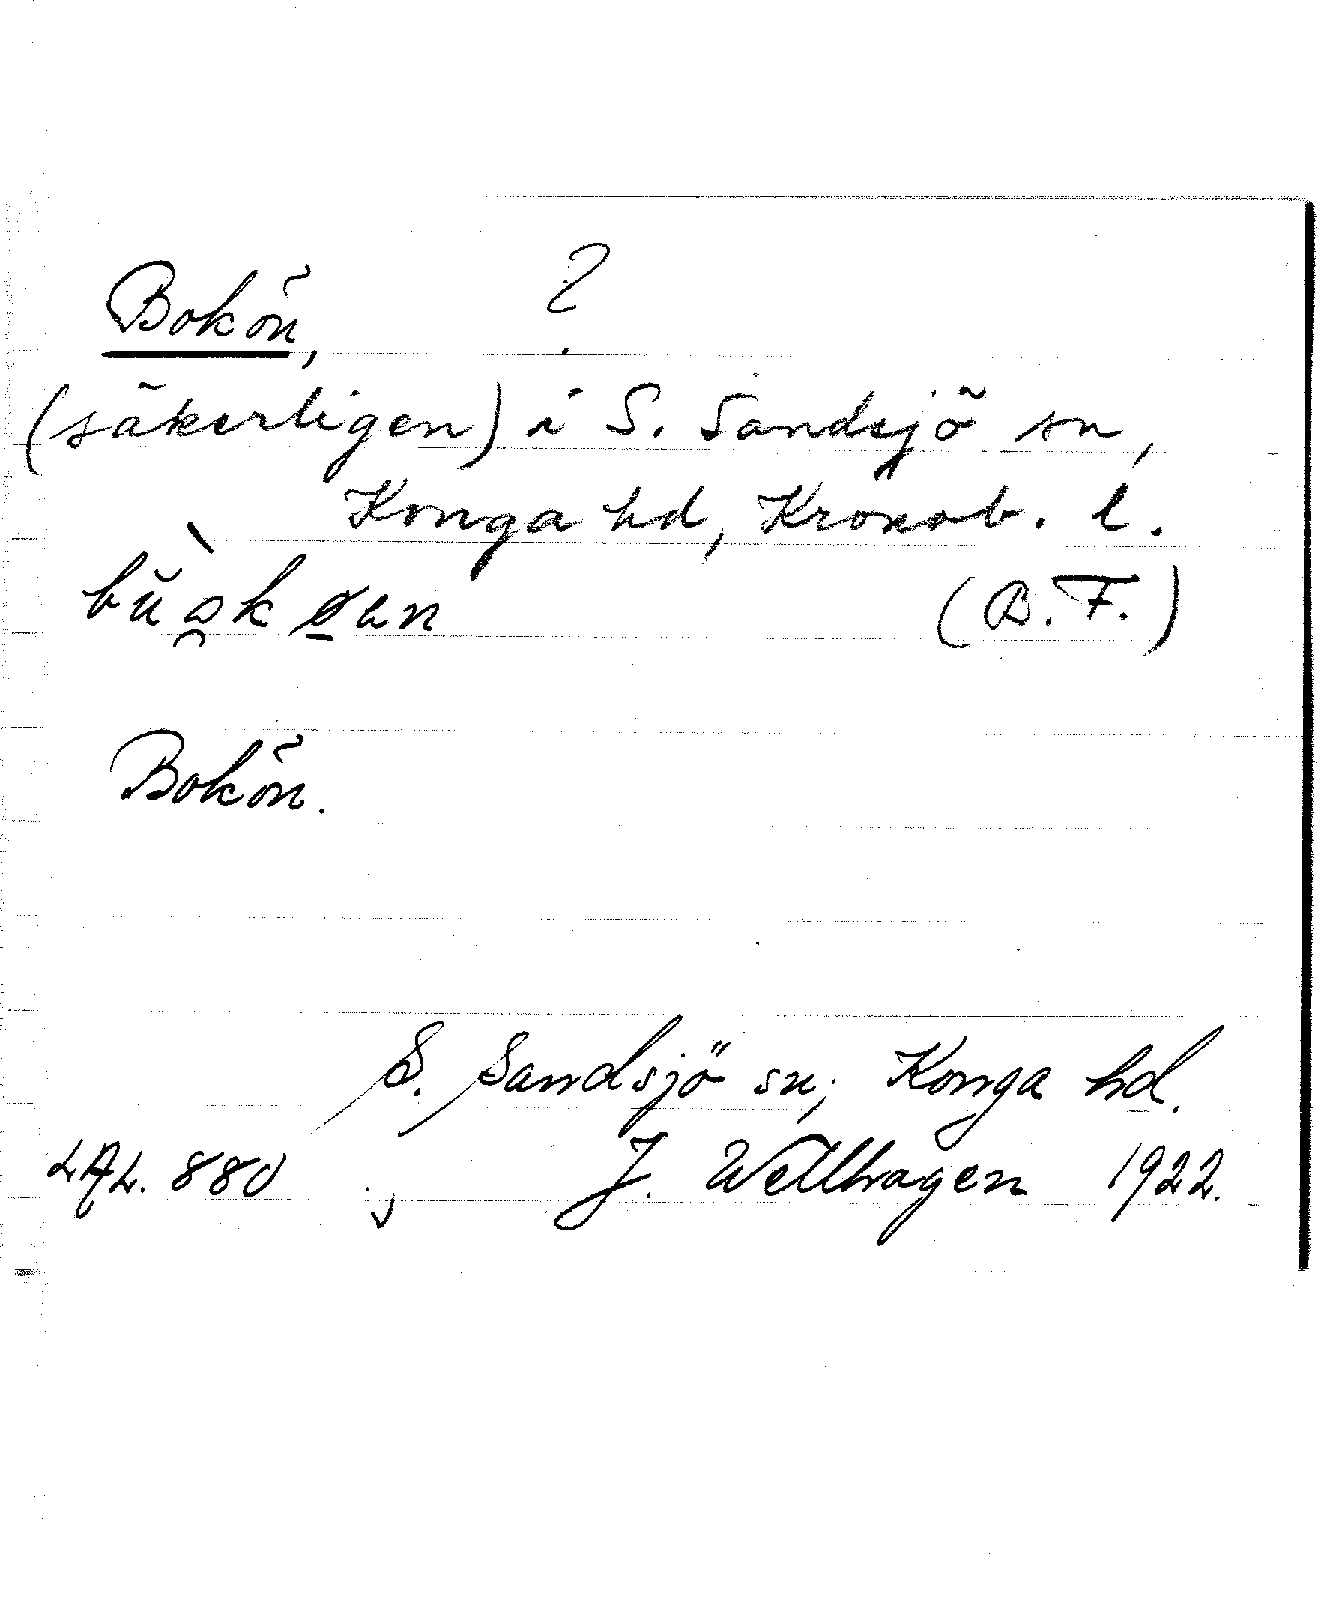 Bokön, ?
(säkerligen) i S. Sandsjö sn,
Konga hd, Kronob. l.
(B.F.)
Bokön.
S. Sandsjö sn; Konga hd.
LAL. 880 J. Wellhagen 1922.